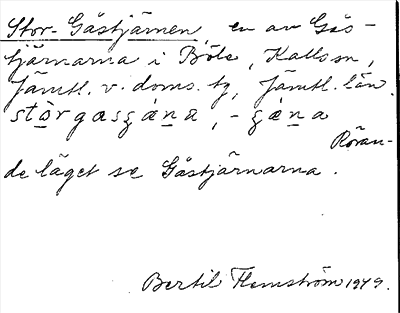 Stor-Gåstjärnen, en av Gås-
tjärnarna i Böle, Kallsn,
Jämtl. v. doms. tg, Jämtl. län.
Röran-
de läget se Gåstjärnarna.
Bertil Flemström 1949.